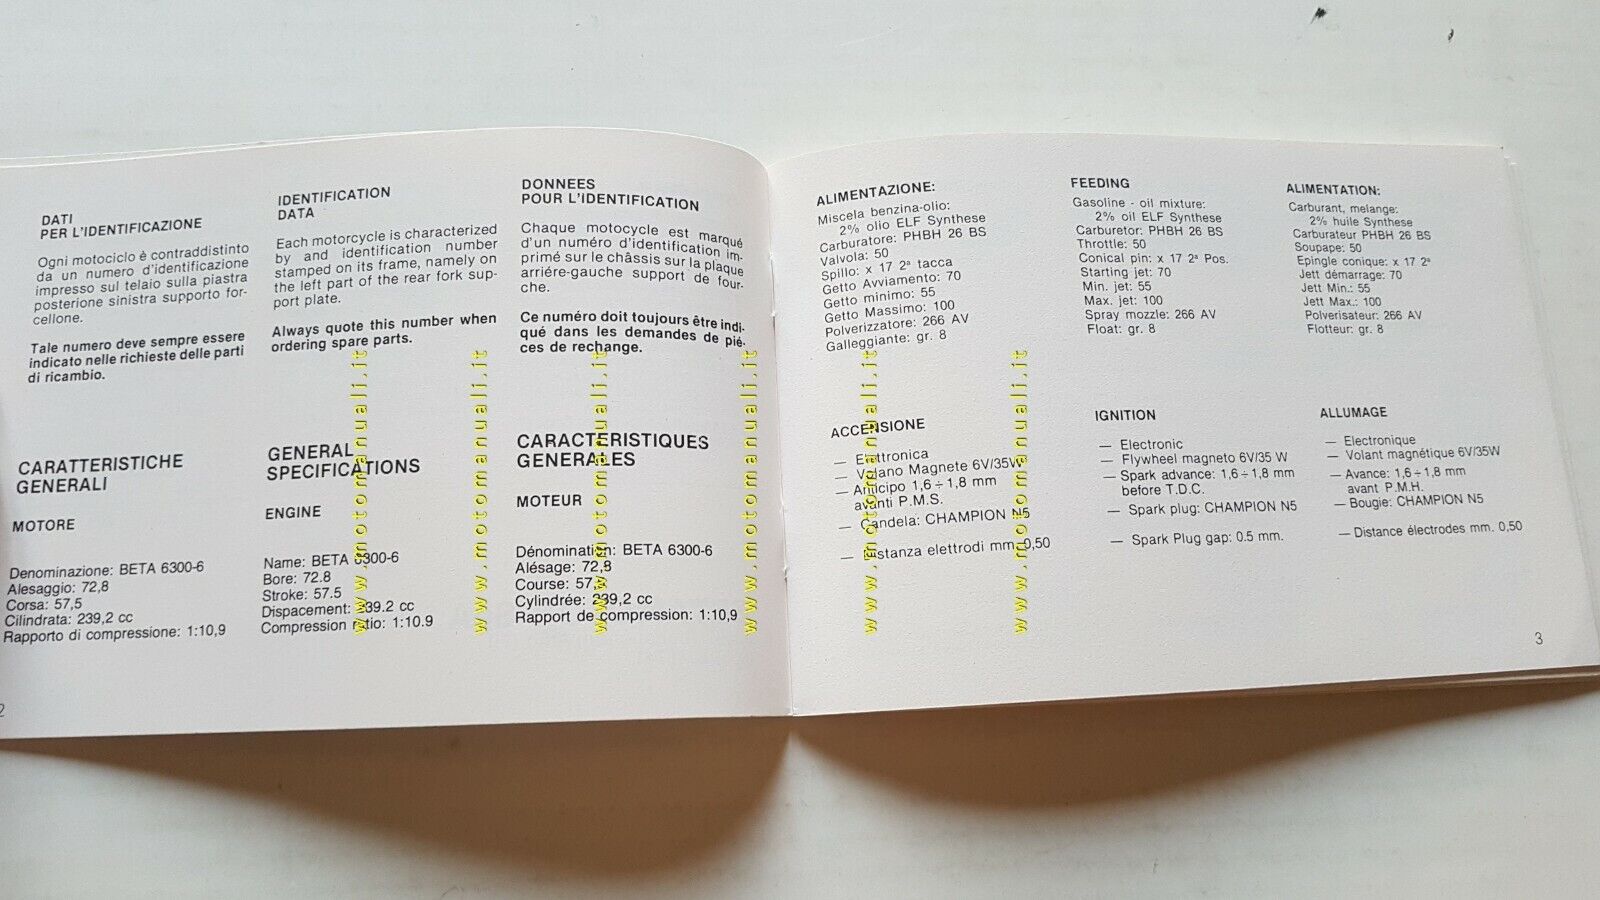 DATI
PER L'IDENTIFICAZIONE
Ogni motociclo è contraddistinto
da un numero d'identificazione
impresso sul telaio sulla piastra
posteriore sinistra supporto for-
cellone.
Tale numero deve sempre essere
indicato nelle richieste delle parti
di ricambio.
CARATTERISTICHE
GENERALI
MOTORE
Denominazione: BETA 6300-6
Alesaggio: 72,8
Corsa: 57,5
Cilindrata: 239,2 cc
Rapporto di compressione: 1:10,9
2
IDENTIFICATION
DATA
Each motorcycle is characterized
by and identification number
stamped on its frame, namely on
the left part of the rear fork sup-
port plate.
Always quote this number when
ordering spare parts.
GENERAL
SPECIFICATIONS
ENGINE
Name: BETA 6300-6
Bore: 72.8
Stroke: 57.5
Dispacement: 239.2 cc
Compression ratio: 1:10.9
DONNEES
POUR L'IDENTIFICATION
Chaque motocycle est marqué
d'un numéro d'identification im-
primé sur le châssis sur la plaque
arriére-gauche support de four-
che.
Ce numéro doit toujours être indi-
qué dans les demandes de pié-
ces de rechange.
CARACTERISTIQUES
GENERALES
MOTEUR
Dénomination: BETA 6300-6
Alésage: 72,8
Course: 57,5
Cylindrée: 239,2 cc
Rapport de compression: 1:10,9
ALIMENTAZIONE:
Miscela benzina-olio:
2% olio ELF Synthese
Carburatore: PHBH 26 BS
Valvola: 50
Spillo: x 17 2ª tacca
Getto Avviamento: 70
Getto minimo: 55
Getto Massimo: 100
Polverizzatore: 266 AV
Galleggiante: gr. 8
ACCENSIONE
— Elettronica
— Volano Magnete 6V/35W
— Anticipo 1,6 ÷ 1,8 mm
avanti P.M.S.
— Candela: CHAMPION N5
— Distanza elettrodi mm. 0,50
FEEDING
Gasoline - oil mixture:
2% oil ELF Synthese
Carburetor: PHBH 26 BS
Throttle: 50
Conical pin: x 17 2ª Pos.
Starting jet: 70
Min. jet: 55
Max. jet: 100
Spray mozzle: 266 AV
Float: gr. 8
IGNITION
— Electronic
— Flywheel magneto 6V/35 W
— Spark advance: 1,6 ÷ 1,8 mm
before T.D.C.
— Spark plug: CHAMPION N5
— Spark Plug gap: 0.5 mm.
ALIMENTATION:
Carburant, melange:
2% huile Synthese
Carburateur PHBH 26 BS
Soupape: 50
Epingle conique: x 17 2ª
Jett démarrage: 70
Jett Min.: 55
Jett Max.: 100
Polverisateur: 266 AV
Flotteur: gr. 8
ALLUMAGE
— Electronique
— Volant magnétique 6V/35W
— Avance: 1,6 ÷ 1,8 mm
avant P.M.H.
— Bougie: CHAMPION N5
— Distance électrodes mm. 0,50
3
www.motomanuali.it
www.motomanuali.it
www.motomanuali.it
www.motomanuali.it
www.motomanuali.it
www.motomanuali.it